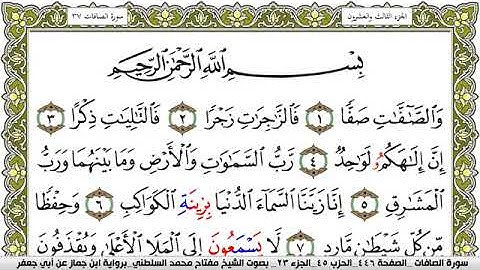 سورة الصافات ٣٧
الجزء الثالث والعشرون
بِسْمِ اللَّهِ الرَّحْمَٰنِ الرَّحِيمِ
وَالصَّٰٓفَّٰتِ صَفًّا ١ فَالزَّٰجِرَٰتِ زَجْرًا ٢ فَالتَّٰلِيَٰتِ ذِكْرًا ٣
إِنَّ إِلَٰهَكُمُۥ لَوَٰحِدٌ ٤ رَبُّ السَّمَٰوَٰتِ وَالْأَرْضِ وَمَا بَيْنَهُمَا وَرَبُّ
الْمَشَٰرِقِ ٥ إِنَّا زَيَّنَّا السَّمَآءَ الدُّنْيَا بِزِينَةِ الْكَوَاكِبِ ٦ وَحِفْظًا
مِّن كُلِّ شَيْطَٰنٍ مَّارِدٍ ٧ لَا يَسْمَعُونَ إِلَى الْمَلَإِ الْأَعْلَىٰ وَيُقْذَفُونَ
سورة الصافات _ الصفحة ٤٤٦ _ الحزب ٤٥ _ الجزء ٢٣ _ بصوت الشيخ مفتاح محمد السلطني _ برواية ابن جماز عن أبي جعفر